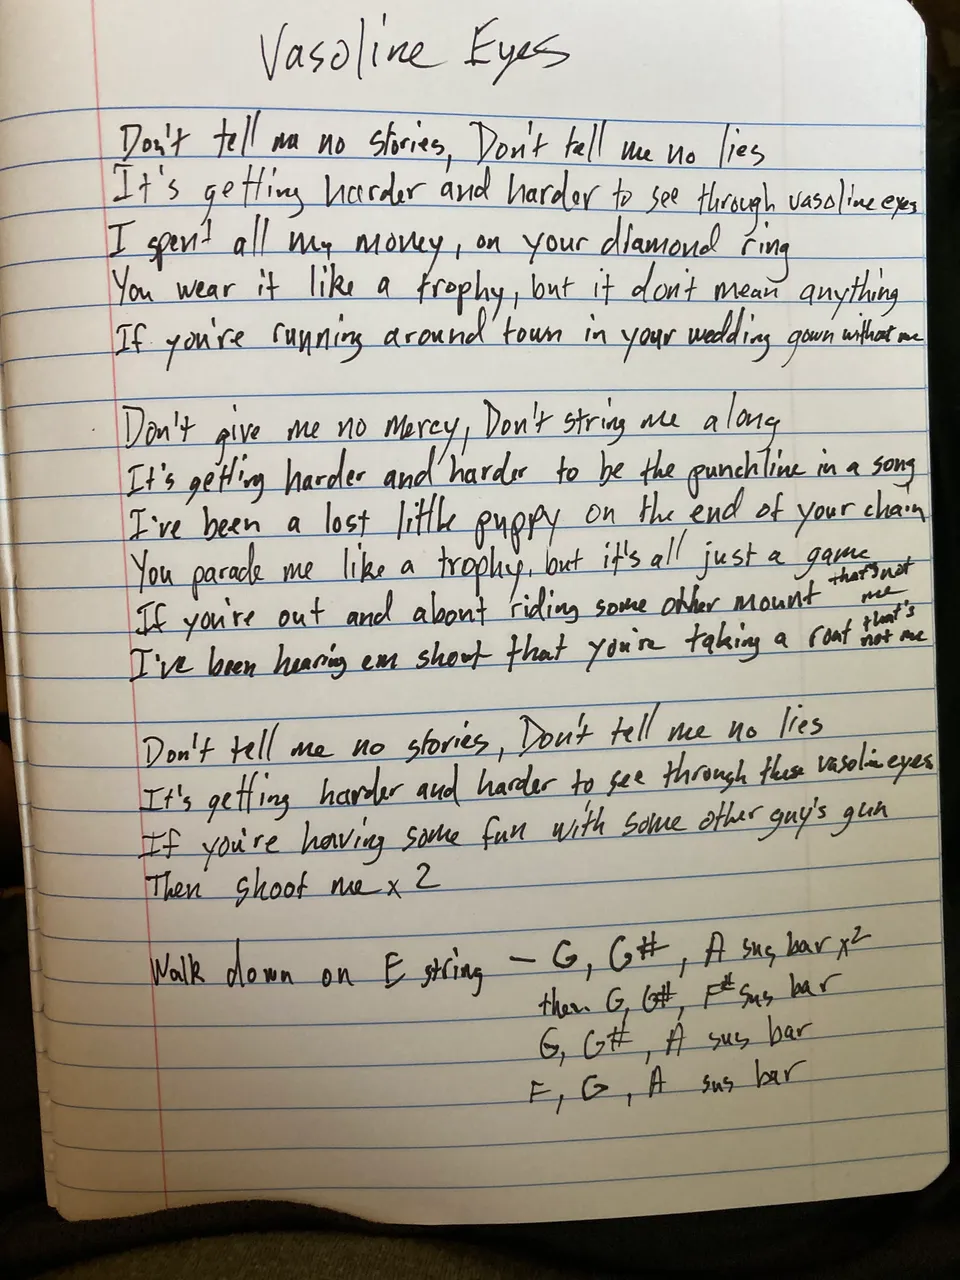 Vasoline Eyes
Don't tell me no stories, Don't tell me no lies
It's getting harder and harder to see through vasoline eyes
I spent all my money, on your diamond ring
You wear it like a trophy, but it don't mean anything
If you're running around town in your wedding gown without me
Don't give me no mercy, Don't string me along
It's getting harder and harder to be the punchline in a song
I've been a lost little puppy on the end of your chain
You parade me like a trophy, but it's all just a game
If you're out and about riding some other mount that's not me
I've been hearing em shout that you're taking a rout that's not me
Don't tell me no stories, Don't tell me no lies
It's getting harder and harder to see through these vasoline eyes
If you're having some fun with some other guy's gun
Then shoot me x 2
Walk down on E string – G, G#, A sus bar x2
then G, G#, F# sus bar
G, G#, A sus bar
F, G, A sus bar